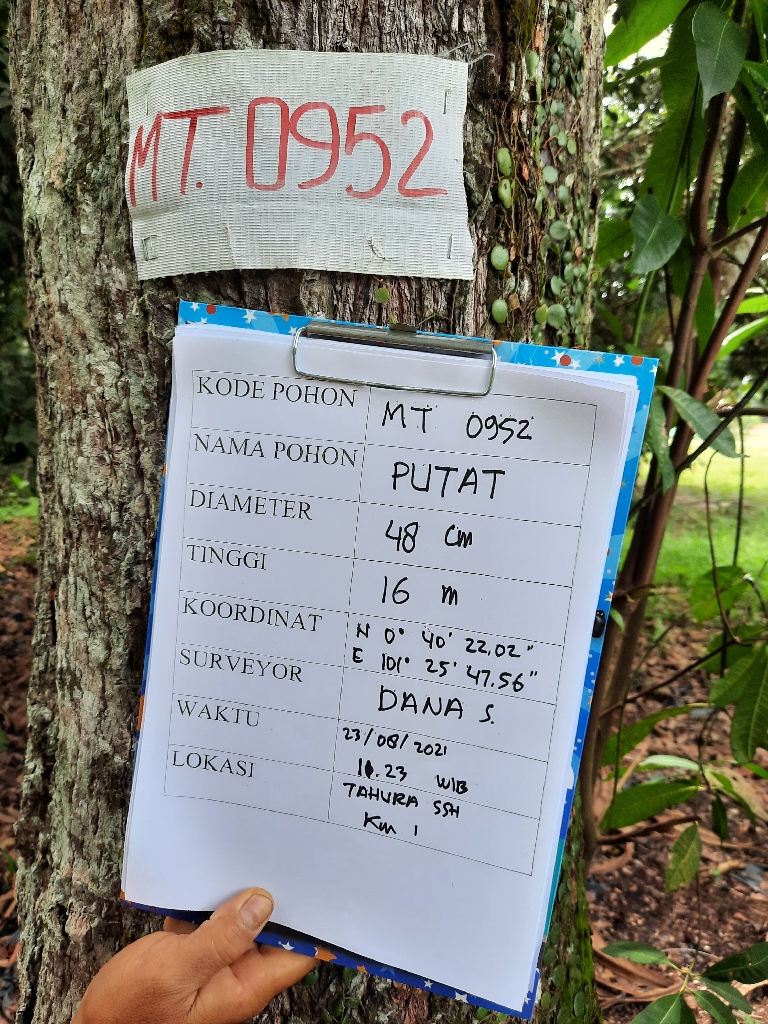 MT. 0952
KODE POHON MT 0952
NAMA POHON PUTAT
DIAMETER 48 cm
TINGGI 16 m
KOORDINAT N 0° 40' 22,02"
E 101° 25' 47.56"
SURVEYOR DANA S.
WAKTU 23/08/2021
10.23 WIB
LOKASI TAHURA SSH
Km 1